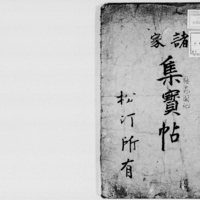 諸家
集寶帖
松汀所有